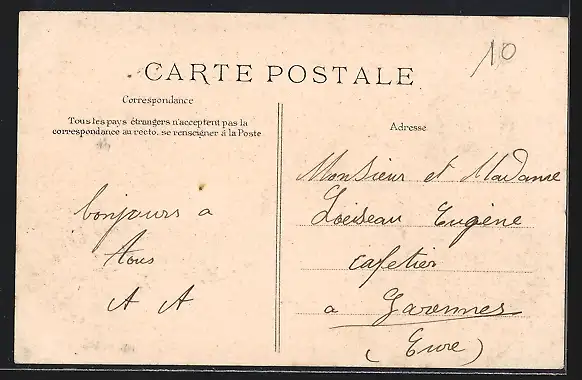 10
CARTE POSTALE
Correspondance
Tous les pays étrangers n'acceptent pas la
correspondance au recto. se renseigner à la Poste
bonjours a
tous
A A
Adresse
Monsieur et Madame
Loeiseau Eugène
cafetier
a Garennes
(Eure)